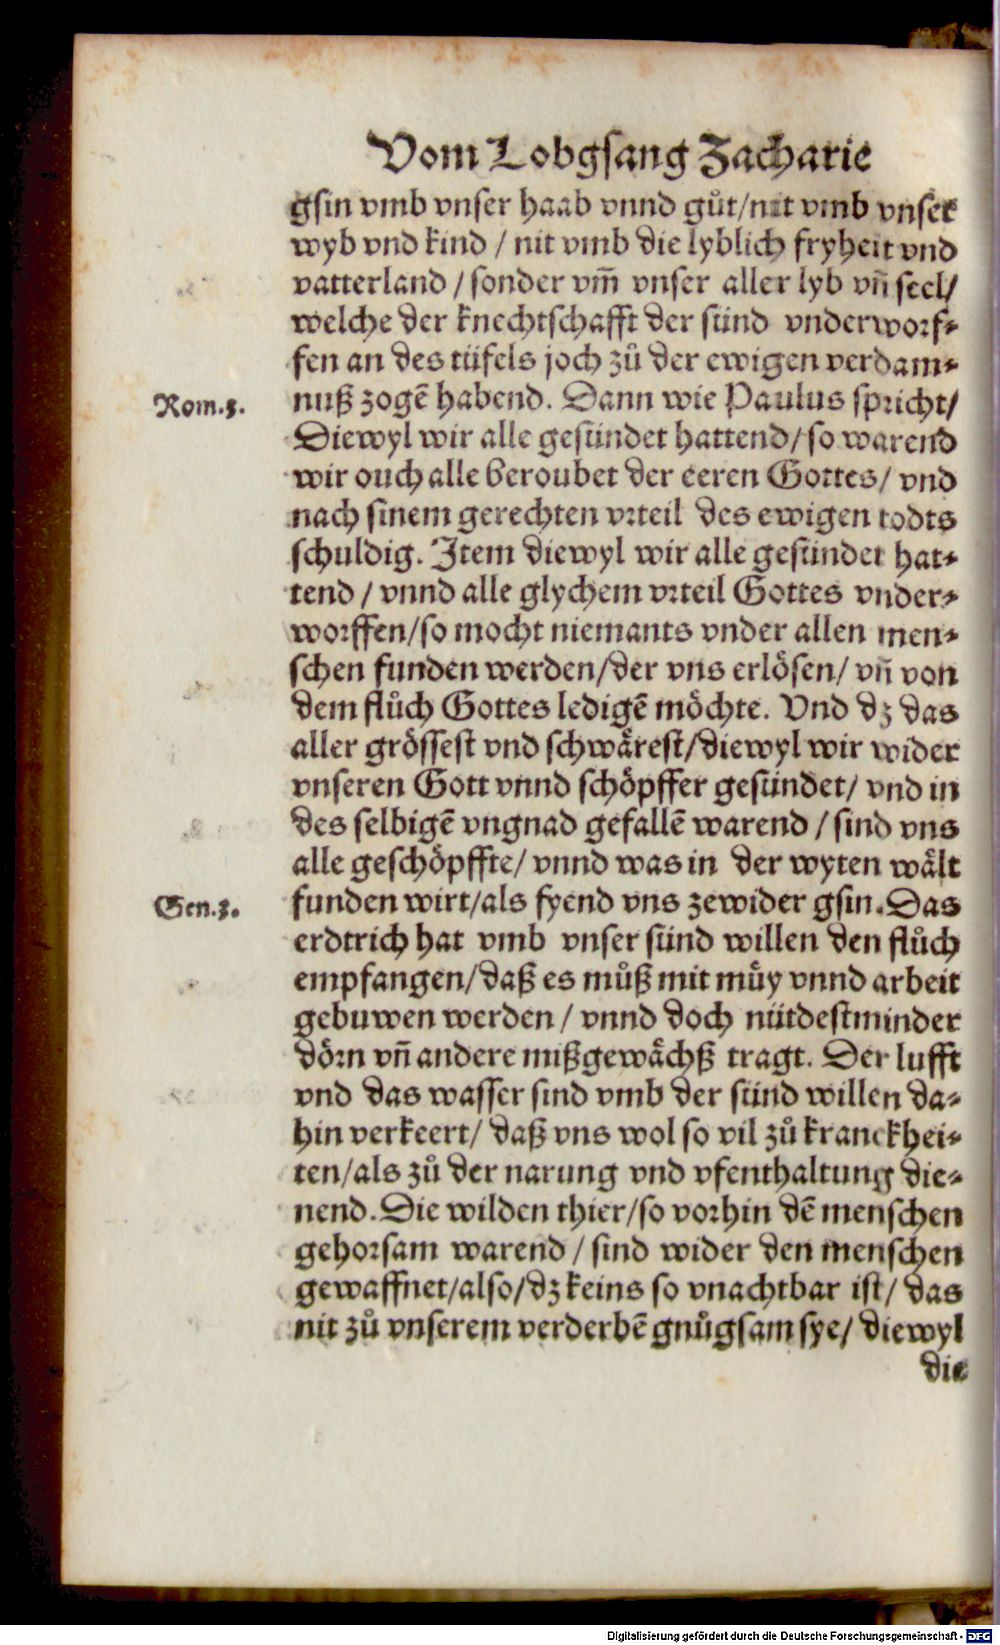 Vom Lobgsang Zacharie
gsin vmb vnser haab vnnd gůt/nit vmb vnser
wyb vnd kind / nit vmb die lyblich fryheit vnd
vatterland / sonder vm̃ vnser aller lyb vñ seel/
welche der knechtschafft der sünd vnderworf⸗
fen an des tüfels joch zů der ewigen verdam⸗
Rom.3.
nuß zogẽ habend. Dann wie Paulus spricht/
Diewyl wir alle gesündet hattend/so warend
wir ouch alle beroubet der eeren Gottes/ vnd
nach sinem gerechten vrteil des ewigen todts
schuldig. Item diewyl wir alle gesündet hat⸗
tend / vnnd alle glychem vrteil Gottes vnder⸗
worffen/so mocht niemants vnder allen men⸗
schen funden werden/der vns erlösen/ vñ von
dem flůch Gottes ledigẽ möchte. Vnd dz das
aller grössest vnd schwärest/diewyl wir wider
vnseren Gott vnnd schöpffer gesündet/ vnd in
des selbigẽ vngnad gefallẽ warend / sind vns
alle geschöpffte/ vnnd was in der wyten wält
Gen.3.
funden wirt/als fyend vns zewider gsin. Das
erdtrich hat vmb vnser sünd willen den flůch
empfangen/daß es můß mit müy vnnd arbeit
gebuwen werden / vnnd doch nütdestminder
dörn vñ andere mißgewächß tragt. Der lufft
vnd das wasser sind vmb der sünd willen da⸗
hin verkeert/ daß vns wol so vil zů kranckhei⸗
ten/als zů der narung vnd vfenthaltung die⸗
nend. Die wilden thier/so vorhin dẽ menschen
gehorsam warend / sind wider den menschen
gewaffnet/also/dz keins so vnachtbar ist/ das
nit zů vnserem verderbẽ gnůgsam sye/ diewyl
die
Digitalisierung gefördert durch die Deutsche Forschungsgemeinschaft - DFG